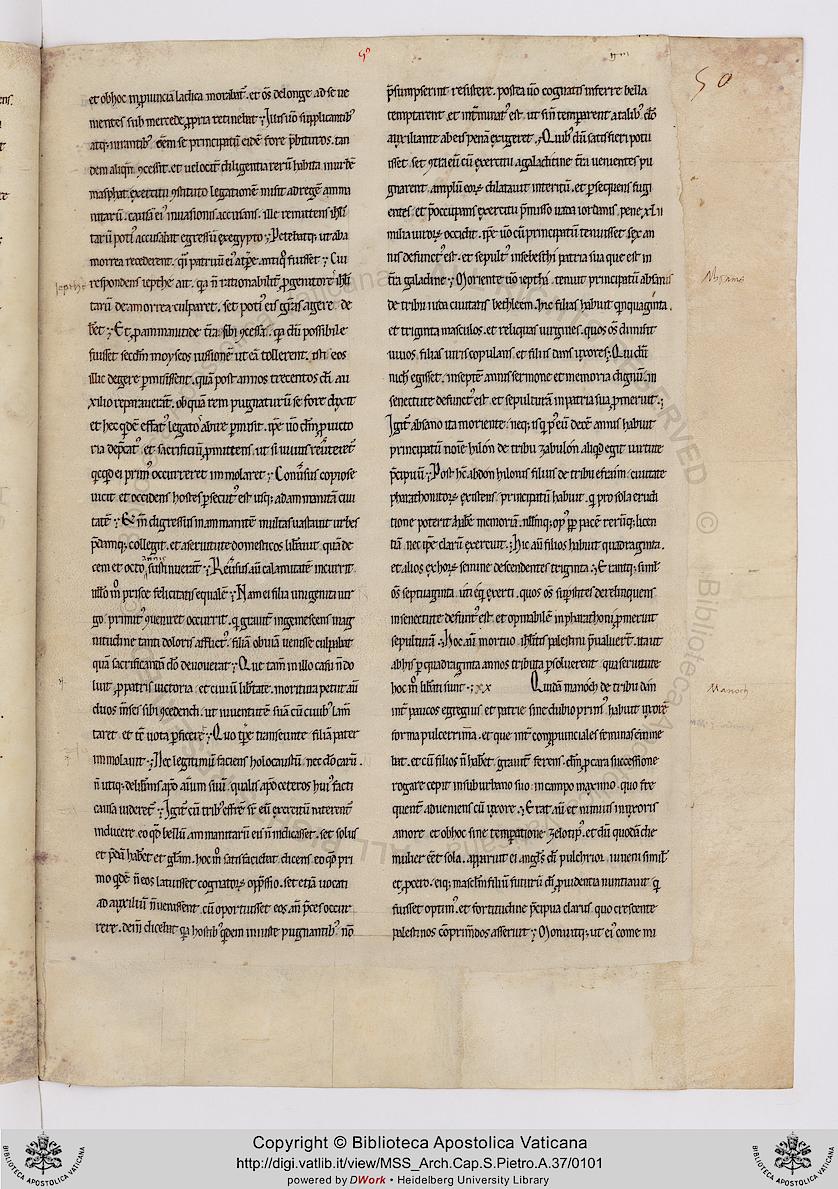 5⁰
50
et obhoc inp̱uincia ladica morabat᷑. et oṁs delonge ad se ue
nientes sub mercede p̱pria retinebat. Illis u̅o supplicantibꝰ
atq; iurantibꝰ
dem aliqn̅ ꝯcessit. et uelociṫ diligentia rerū habita in urbē
masphat exercitu ꝯstituto legationē misit ad regē amma
nitarū. causā eiꝰ inuasionis accusans. ille remittens isrl̅i
tarū potiꝰ accusabat egressū exegypto. Petebatq; ut aba
morrea recederent. Cui
iepthe
respondens iepthe ait.
tarū de amorrea culparet. set potiꝰ eis gr̅as agere de
bet. Et p̱ammanitide t̅ra sibi ꝯcessa. possibile
fuisset sc̅dm moyseos iussionē ut eā tollerent.
illic degere p̱misissent. quā post annos trecentos dō au
xilio reparauerant. ob quam rem pugnaturū se fore dixit
et hec q̇dē effatꝰ legatos abire p̱misit. ip̅e u̅o dn̅m p̱uicto
ria dep̱catꝰ. et sacrificiū p̱mittens. ut si uiuus reūteret᷑
qċqd ei primꝰ occurreret immolaret. Conūsus copiose
uicit et occidens hostes p̱secutꝰ est usq; ad ammanitā ciui
tatē. digressus in ammanitē multas uastauit urbes
p̱damq; collegit. et aseruitute domesticos lib̅auit quā de
cem et octo annis sustinuerant. Reūsus au̅ calamitatē incurrit
ullo m̊ prisce felicitatis equalē. Nam ei filia unigenita uir
go primitꝰ ꝯueniret occurrit. q̇ grauiṫ ingemescens mag
nitudine tanti doloris afflictꝰ. filiā obuiā uenisse culpabat
quā sacrificandā dō deuouerat. Que tam̅ in illo casu n̅ do
luit. p̱ patris uictoria et ciuiū lib̅tate. moritura petiit au̅
duos m̅ses sibi ꝯcedendi. ut iuuentutē suā cū ciuibꝰ lam̅
taret. et tc̅ uota p̱ficeret. Quo tp̅re transeunte filiā pater
immolauit. Nec legitimū faciens holocaustū nec dō carū.
n̅ utiq; delib̅ans apd̅ animū suū. qualis apd̅ ceteros huiꝰ facti
causa uideret᷑. Igit᷑ cū tribꝰ effrē s̅r eū exercitū niterent᷑
inducere. eo qd̅ bellū ammanitarū eis n̅ indicasset. set solus
et p̱dā haberet et gl̅am. hoc m̊ satisfaciebat dicens eo qd̅ pri
mo q̇dē n̅ eos latuisset cognatorꝝ opp̱ssio. set etiā uocati
ad auxiliū n̅ uenissent. cū oportuisset eos an̅ p̱ces occur
rere. dein̅ dicebat q̇a hostibꝰ q̇dem iniuste pugnantibꝰ no̅
p̱sumpserint resistere. postea u̅o cognatis inferre bella
temptarent. et int̅minatꝰ est. ut si n̅ temp̱arent atalibꝰ dō
auxiliante ab eis penā exigeret. Quibꝰ cū satisfieri potu
isset. set ꝯtra eū cū exercitu agalachtine t̅ra uenientes pu
gnarent. ampluī eorꝝ dilatauit interitū. et p̱sequens fugi
entes. et p̱occupans exercitu p̱misso uada iordanis. pene xl ii
milia uirorꝝ occidit. ip̅e u̅o cū principatū tenuisset sex an
nis defunctꝰ est. et sepultꝰ insebeschi patria sua que est in
t̅ra galadine. Moriente u̅o iepthe. tenuit principatū absanis
Absanis
de tribu iuda ciuitatis bethleem. hic filias habuit quinquaginta.
et triginta masculos. et reliquas uirgines. quos oṁs dimisit
uiuos. filias uiris copulans et filiis dans uxores. Qui cū
nich̅ egisset. in septē annis sermone et memoria dignū. in
senectute defunctꝰ est. et sepulturā in patria sua p̱meruit.
Igit᷑ absano ita moriente. neq; isq̇ p̱ eū decē annis habuit
principatū noīe hilōn de tribu zabulōn. aliq̇d egit uirtute
p̱cipuū. Post hc̅ abdon hilonis filius de tribu efraim. ciuitate
pharathonitorꝝ existens. principatū habuit. q̇ p̱ sola erudi
tione poterit habē memoriā. licen
tiā nec ip̅e clarū exercuit. Hic au̅ filios habuit quadraginta.
et alios ex horꝝ semine descendentes triginta.
oṁs septuaginta quos oṁs sup̱stites derelinquens
in senectute defunctꝰ est. et opinabilē in pharathoni p̱meruit
sepulturā. Hoc au̅ mortuo isrl̅itis palestini p̱ualuer̅t. ita ut
ab his p̱ quadraginta annos tributa p̱soluerent qua seruitute
hoc m̊ lib̅ati sunt. xx Quidā manoch de tribu dan
Manoch
int̅ paucos egregius et patrie sine dubio primꝰ habuit uxorē
forma pulcerrima. et que int̅ comp̱uinciales femina semine
bat. et cū filios n̅ habet. grauiṫ ferens. dn̅m p̱ cara successione
rogare cepit in suburbano suo. in campo maximo. quo fre
quent̅ adueniens cū uxore. Erat au̅ et nimius in uxoris
amore. et ob hoc sine temp̱atione zelotipꝰ. et dū quodā die
mulier eēt sola. apparuit ei angl̅s di̅ pulchrior. iuueni similis
et p̱cero. eiq; masclm̅ filiū futurū di̅ p̱uidentia nuntiauit q̇
fuisset optimꝰ. et fortitudine p̱cipua clarus. quo crescente
palestinos cōprimdos asseruit. Monuitq; ut ei come mi
Copyright © Biblioteca Apostolica Vaticana
http://digi.vatlib.it/view/MSS_Arch.Cap.S.Pietro.A.37/0101
powered by DWork • Heidelberg University Library